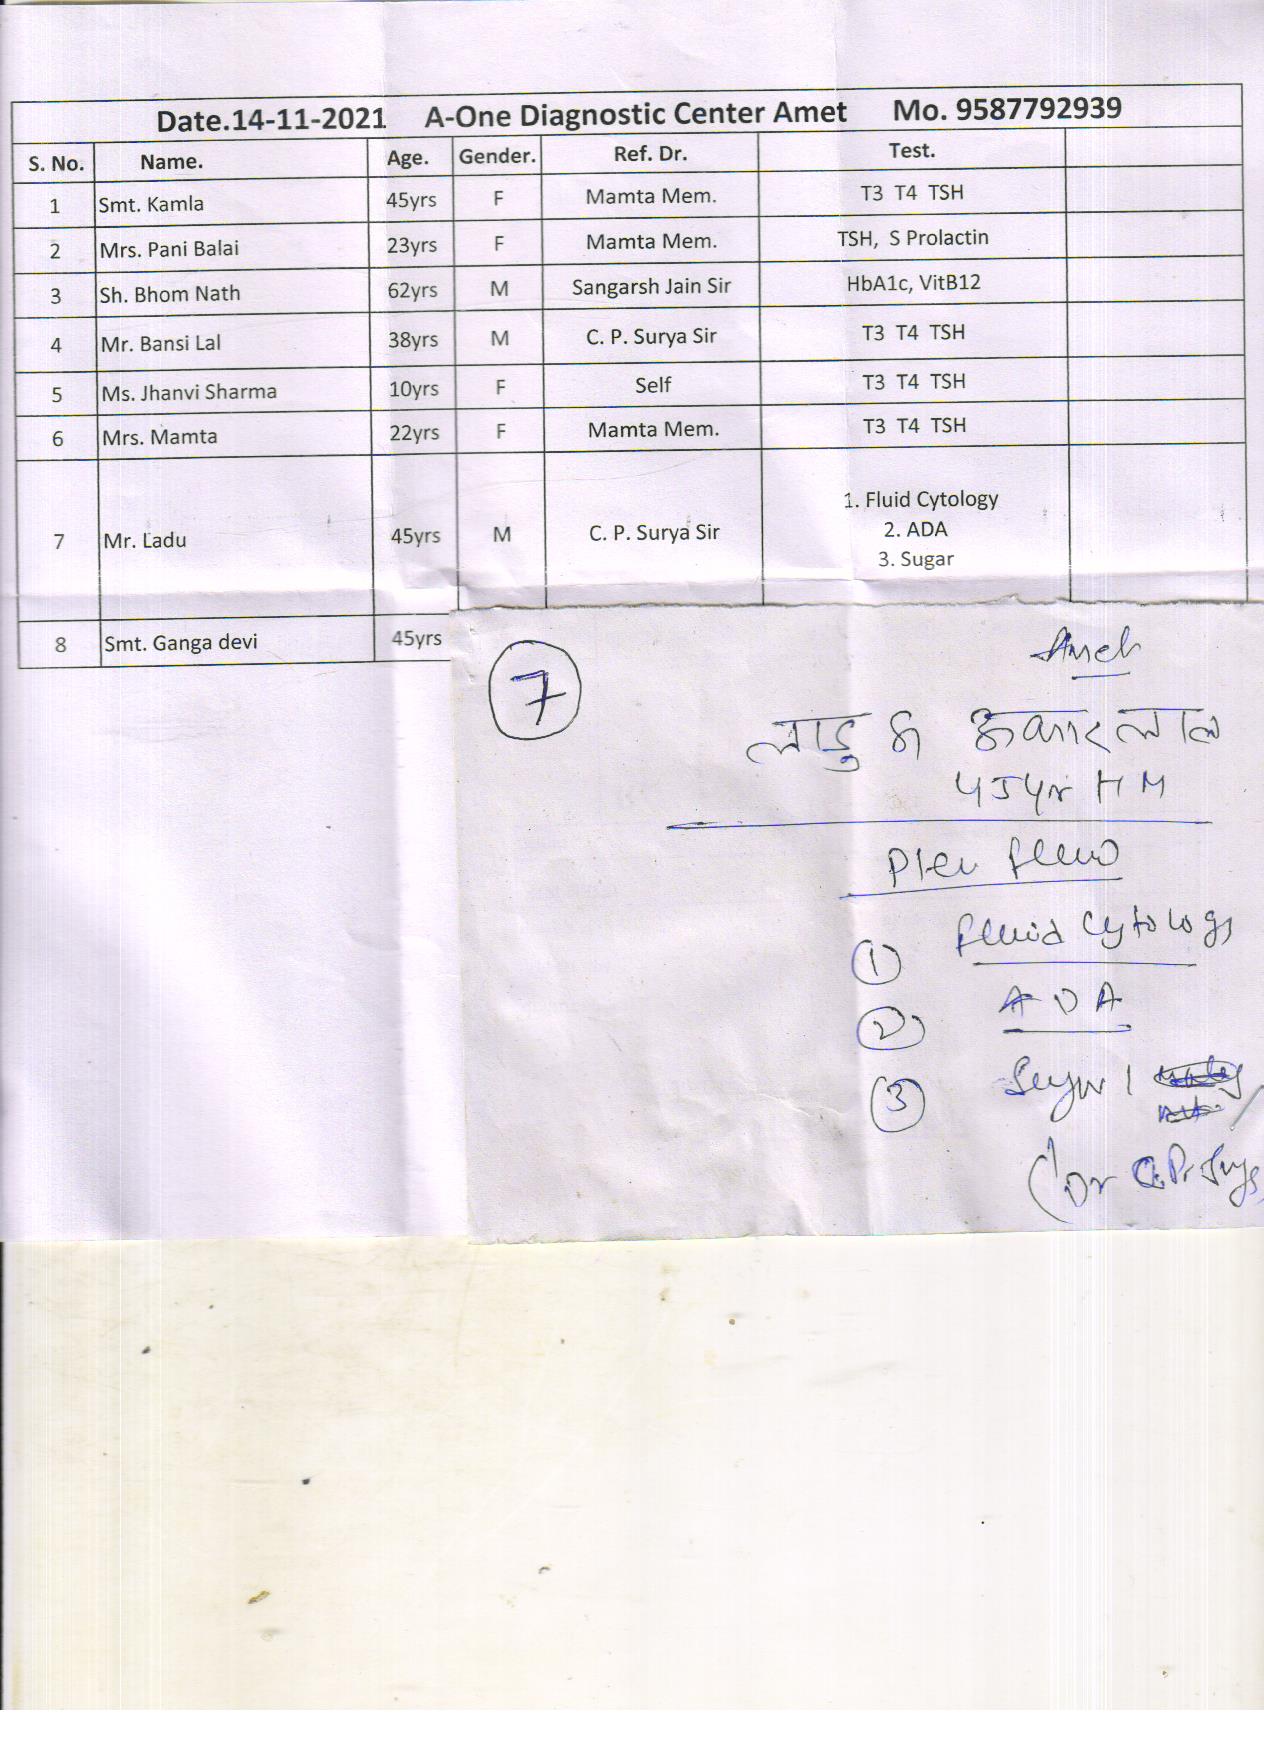 Date.14-11-2021 A-One Diagnostic Center Amet Mo. 9587792939
S. No. Name. Age. Gender. Ref. Dr. Test.
1 Smt. Kamla 45yrs F Mamta Mem. T3 T4 TSH
2 Mrs. Pani Balai 23yrs F Mamta Mem. TSH, S Prolactin
3 Sh. Bhom Nath 62yrs M Sangarsh Jain Sir HbA1c, VitB12
4 Mr. Bansi Lal 38yrs M C. P. Surya Sir T3 T4 TSH
5 Ms. Jhanvi Sharma 10yrs F Self T3 T4 TSH
6 Mrs. Mamta 22yrs F Mamta Mem. T3 T4 TSH
7 Mr. Ladu 45yrs M C. P. Surya Sir 1. Fluid Cytology
2. ADA
3. Sugar
8 Smt. Ganga devi 45yrs
7
Amet
लाडु
45yr H M
Fluid Cytology
1
ADA
2
3
Dr